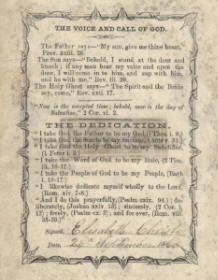 THE VOICE AND CALL OF GOD.
The Father says—"My son, give me thine heart,
Prov. xxiii. 26.
The Son says—"Behold, I stand at the door and
knock; if any man hear my voice and open the
door, I will come in to him, and sup with him,
and he with me." Rev. iii. 20.
The Holy Ghost says—"The Spirit and the Bride
say, come," Rev. xxii. 17.
"Now is the accepted time; behold, now is the day of
Salvation," 2 Cor. vi. 2.
THE DEDICATION.
"I take God the Father to be my God, (Thess. i. 9.)
"I take God the Son to be my Saviour, (Acts v. 31.)
"I take God the Holy Ghost to be my Sanctifier,
(I Peter i. 2.)
"I take the Word of God to be my Rule, (2 Tim.
iii. 16-17.)
"I take the People of God to be my People, (Ruth
i. 16-17.)
"I likewise dedicate myself wholly to the Lord
(Rom. xiv. 7-8.)
"And I do this prayerfully, (Psalm cxix. 94.); de-
liberately, (Joshua xxiv. 15); sincerely, (2 Cor. i.
12); freely, (Psalm cx. 3); and for ever, (Rom. viii.
35-39.)"
Signed, Elizabeth
Date,